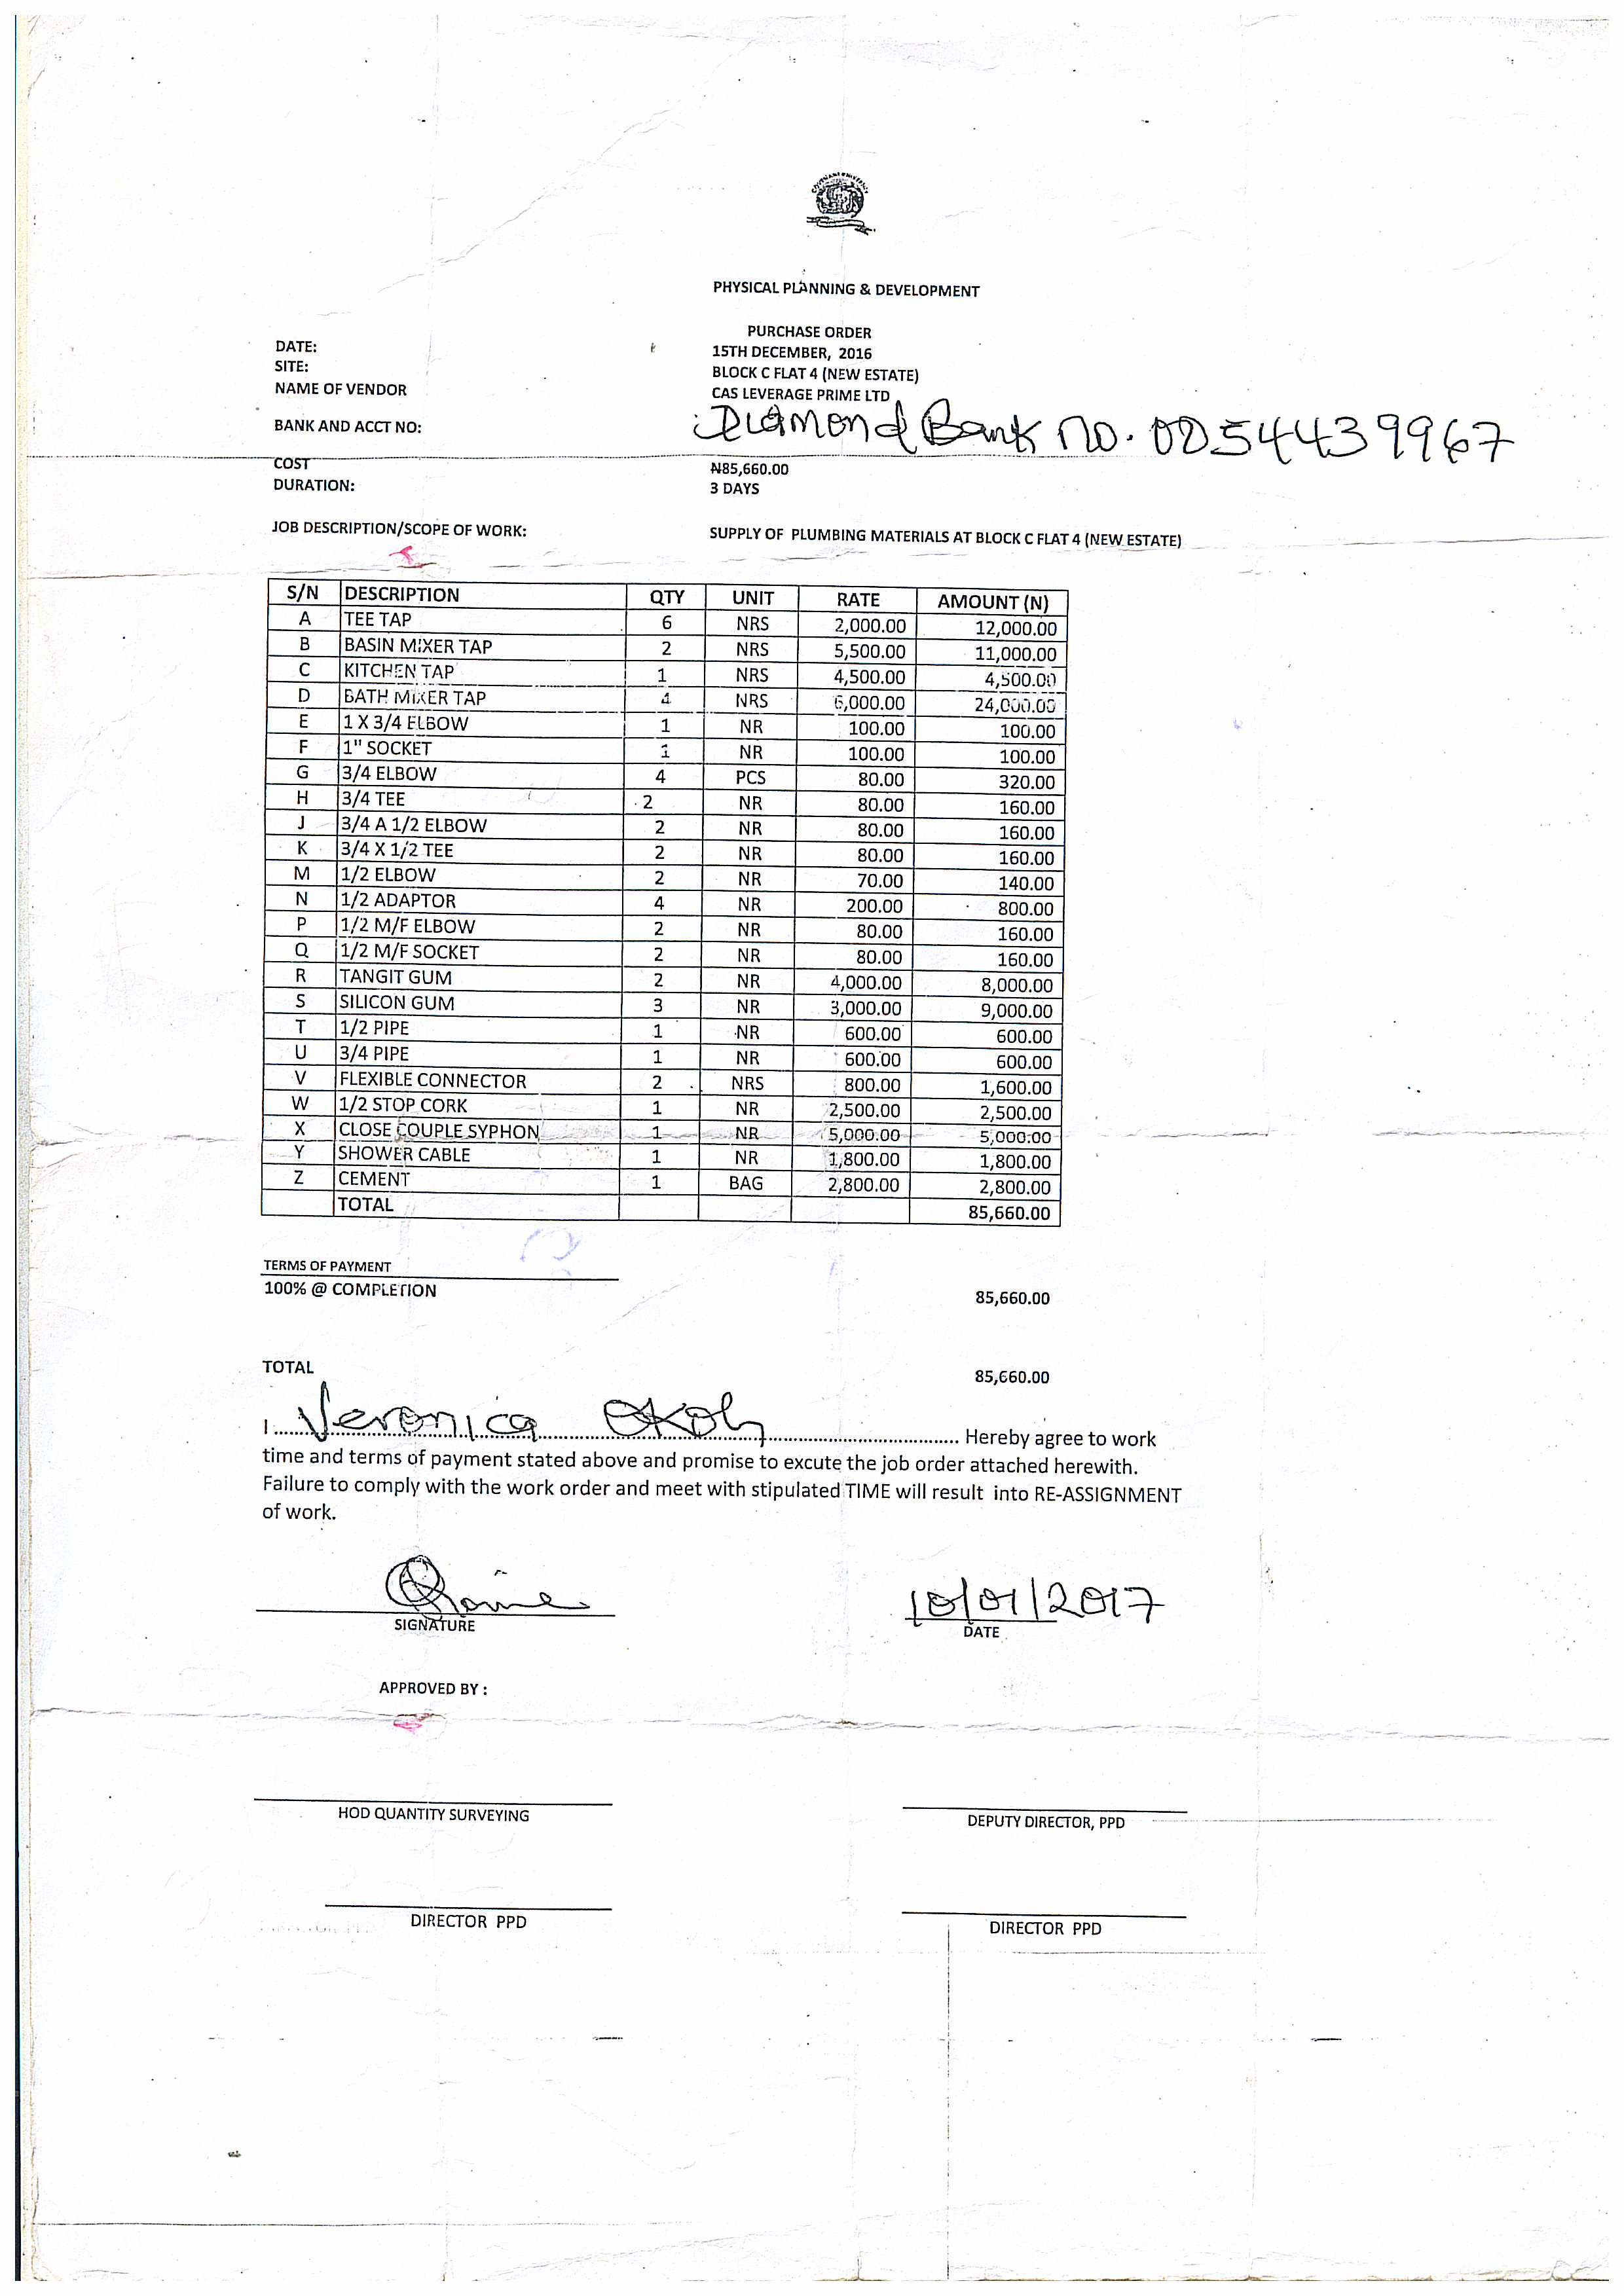 PHYSICAL PLANNING & DEVELOPMENT
PURCHASE ORDER
DATE: 15TH DECEMBER, 2016
SITE: BLOCK C FLAT 4 (NEW ESTATE)
NAME OF VENDOR CAS LEVERAGE PRIME LTD
BANK AND ACCT NO: Diamond Bank no. 0054439967
COST ₦85,660.00
DURATION: 3 DAYS
JOB DESCRIPTION/SCOPE OF WORK: SUPPLY OF PLUMBING MATERIALS AT BLOCK C FLAT 4 (NEW ESTATE)
S/N DESCRIPTION QTY UNIT RATE AMOUNT (N)
A TEE TAP 6 NRS 2,000.00 12,000.00
B BASIN MIXER TAP 2 NRS 5,500.00 11,000.00
C KITCHEN TAP 1 NRS 4,500.00 4,500.00
D BATH MIXER TAP 4 NRS 6,000.00 24,000.00
E 1 X 3/4 ELBOW 1 NR 100.00 100.00
F 1" SOCKET 1 NR 100.00 100.00
G 3/4 ELBOW 4 PCS 80.00 320.00
H 3/4 TEE 2 NR 80.00 160.00
J 3/4 A 1/2 ELBOW 2 NR 80.00 160.00
K 3/4 X 1/2 TEE 2 NR 80.00 160.00
M 1/2 ELBOW 2 NR 70.00 140.00
N 1/2 ADAPTOR 4 NR 200.00 800.00
P 1/2 M/F ELBOW 2 NR 80.00 160.00
Q 1/2 M/F SOCKET 2 NR 80.00 160.00
R TANGIT GUM 2 NR 4,000.00 8,000.00
S SILICON GUM 3 NR 3,000.00 9,000.00
T 1/2 PIPE 1 NR 600.00 600.00
U 3/4 PIPE 1 NR 600.00 600.00
V FLEXIBLE CONNECTOR 2 NRS 800.00 1,600.00
W 1/2 STOP CORK 1 NR 2,500.00 2,500.00
X CLOSE COUPLE SYPHON 1 NR 5,000.00 5,000.00
Y SHOWER CABLE 1 NR 1,800.00 1,800.00
Z CEMENT 1 BAG 2,800.00 2,800.00
TOTAL 85,660.00
TERMS OF PAYMENT
100% @ COMPLETION 85,660.00
TOTAL 85,660.00
I Veronica Okoh Hereby agree to work
time and terms of payment stated above and promise to excute the job order attached herewith.
Failure to comply with the work order and meet with stipulated TIME will result into RE-ASSIGNMENT
of work.
10/01/2017
SIGNATURE DATE
APPROVED BY :
HOD QUANTITY SURVEYING DEPUTY DIRECTOR, PPD
DIRECTOR PPD DIRECTOR PPD